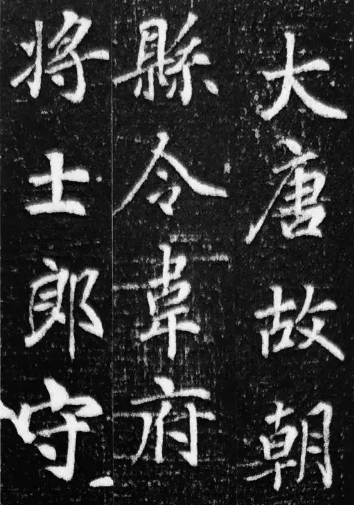 大唐故朝
縣令韋府
将士郎守